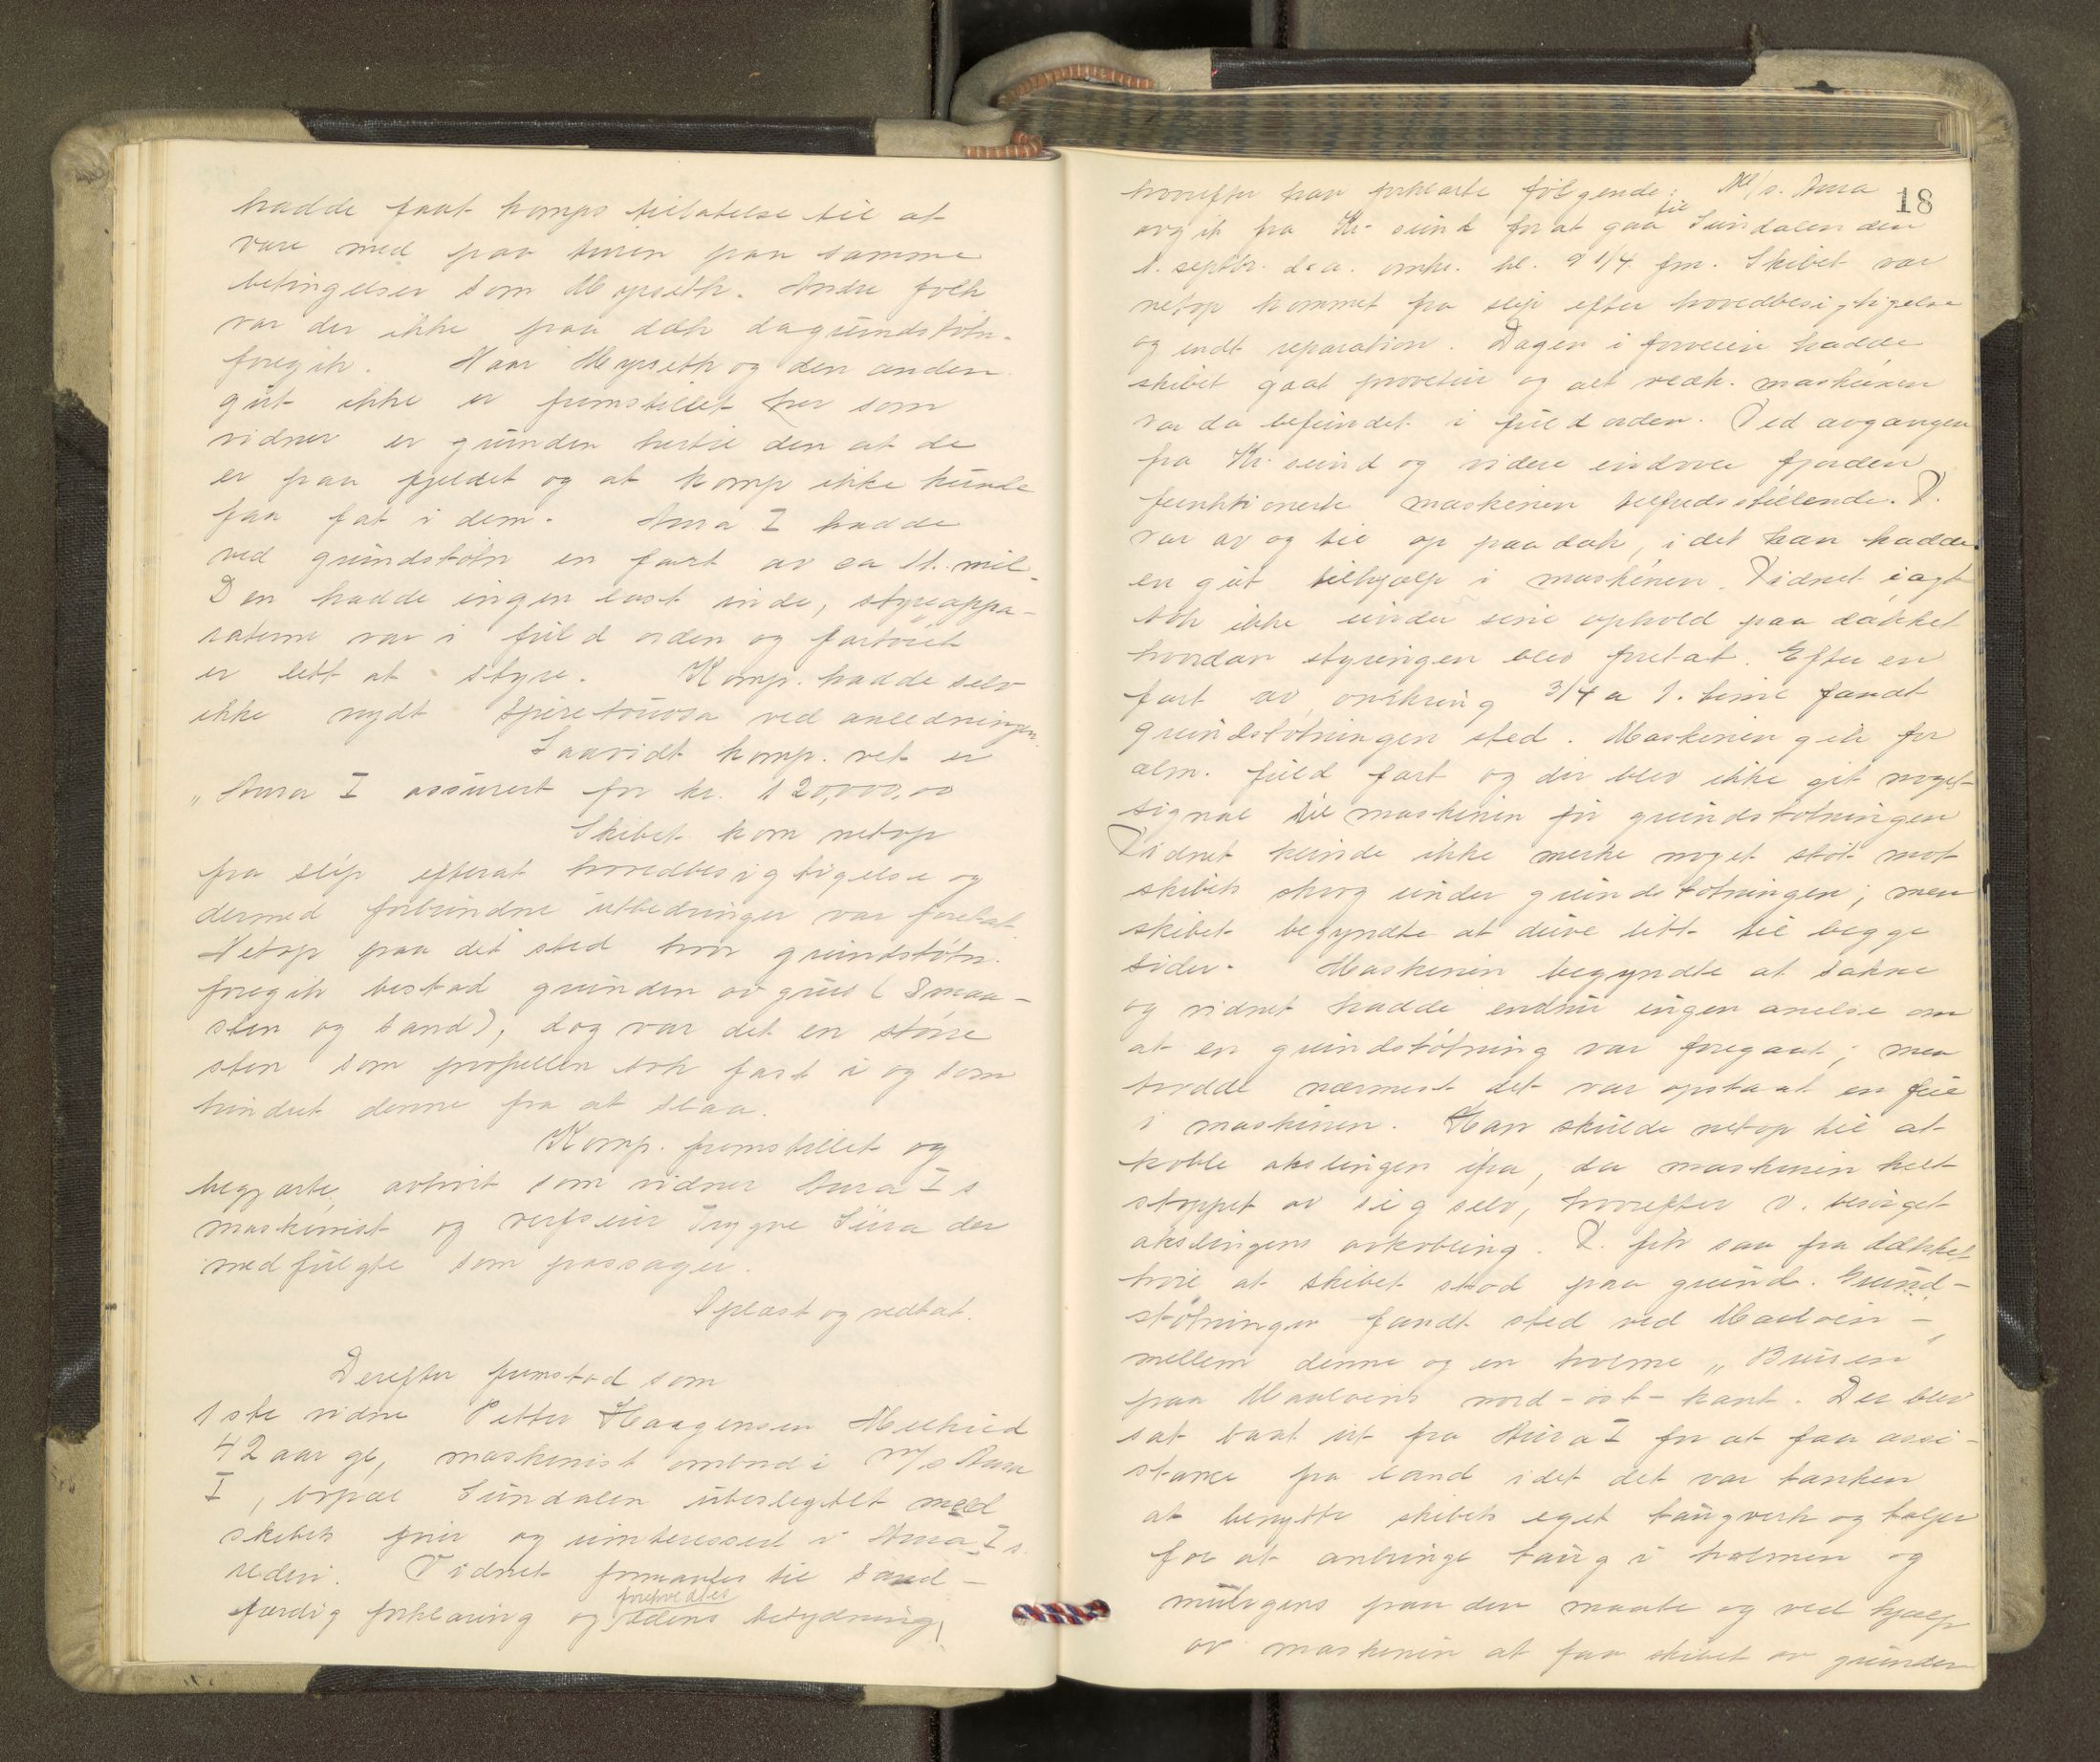 hadde faat komps tillatelse til at
være med paa turen paa samme
betingelser som Myrseth. Andre folk
var der ikke paa dæk da grundstøtn.
foregik. Naar Myrseth og den anden
gut ikke er fremstillet her som
vidner er grunden hertil den at de
er paa fjeldet og at komp ikke kunde
faa fat i dem. Aura I hadde
ved grundstøtn en fart av ca 11. mil.
Den hadde ingen last inde, styreappa-
raterne var i fuld orden og fartøiet
er lett at styre. Komp. hadde selv
ikke nydt spiretuosa ved anledningen.
Saavidt komp. vet er
„Aura I assurert for kr. 120,000,00
Skibet kom netop
fra slip efterat hovedbesigtigelse og
dermed forbundne utbedringer var foretat
Netop paa det sted hvor grundstøtn.
foregik bestod grunden av grus (Smaa-
sten og sand), dog var det en større
sten som propellen tok fast i og som
hindret denne fra at slaa.
Komp. fremstillet og
begjærte avhørt som vidner Aura I s
maskinist og verfseier Trygve Sura der
medfulgte som passager.
Oplæst og vedtat.
Derefter fremstod som
1ste vidne Petter Haagensen
42 aar gl, maskinist ombord i M/s Aura
I, bopæl Sundalen ubeslegtet med
skibets fører og uinteressert i Aura I s
rederi. Vidnet formantes til sand-
færdig forklaring og foreholdtes edens betydning,
18
hvorefter han forklarte følgende: M/s. Aura
avgik fra Kr. sund for at gaa til Sundalen den
1. septbr. d.a. omkr. kl. 9 1/4 fm. Skibet var
netop kommet fra slip efter hovedbesigtigelse
og endt reparation. Dagen i forveien hadde
skibet gaat prøvetur og alt vedk. maskinen
var da befundet i fuld orden. Ved avgangen
fra Kr. sund og videre indover fjorden
funktionerte maskinen tilfredsstillende. V.
var av og til op paa dæk, i det han hadde
en gut tilhjælp i maskinen. Vidnet iagt
tok ikke under sine ophold paa dækket
hvordan styringen blev foretat. Efter en
fart av omkring 3/4 a 1. time fandt
grundstøtningen sted. Maskinen gik for
alm. fuld fart og der blev ikke git noget
signal til maskinen før grundstøtningen
Vidnet kunde ikke merke noget støt mot
skibets skrog under grundstøtningen; men
skibet begyndte at duve litt til begge
sider. Maskinen begyndte at sakne
og vidnet hadde endnu ingen anelse om
at en grundstøtning var foregaat; men
trodde nærmest det var opstaat en feil
i maskinen. Han skulde netop til at
koble akslingen ifra, da maskinen helt
stoppet av sig selv, hvorefter v. besørget
akslingens avkobling. V. fik saa fra dækket
høre at skibet stod paa grund. Grund-
støtningen fandt sted ved Maaløen -
mellem denne og en holme „Buisen"
paa Maaløens nord-øst-kant. Der blev
sat baat ut fra Aura I for at faa assi-
stance fra land idet det var tanken
at benytte skibets eget taugverk og taljer
for at anbringe taug i holmen og
muligens paa den maate og ved hjælp
av maskinen at faa skibet av grunden